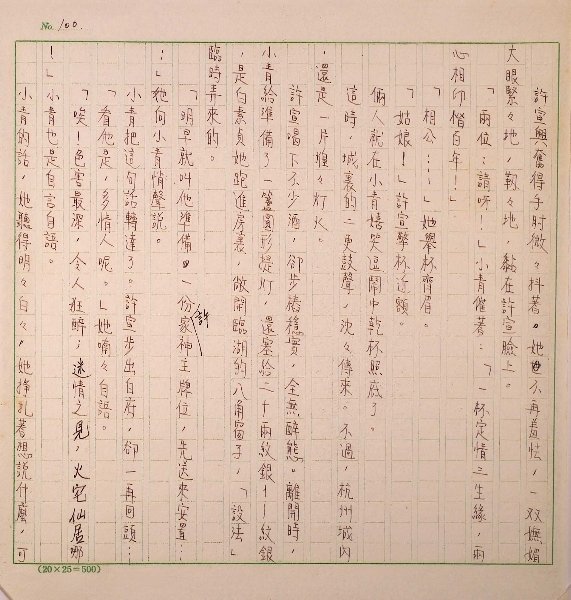 No. 100.
許宣興奮得手肘微々抖著。她不再羞怯，一双嫵媚
大眼緊々地，靭々地，黏在許宣臉上。
「兩位：請呀！」小青催著：「一杯定情三生緣，兩
心相印偕百年！」
「相公……」她舉杯齊眉。
「姑娘！」許宣擎杯逾額。
倆人就在小青嬉哭逗鬧中乾杯照底了。
這時，城裏的二更鼓聲，沈々傳來。不過，杭州城內
，還是一片爗々灯火。
許宣喝下不少酒，卻步樁穩實，全無醉態。離開時，
小青給準備了一盞圓形提灯，還塞給二十兩紋銀——紋銀
，是白素貞她跑進房裏，做開臨湖的八角窗子，「設法」
臨時弄來的。
「明早就叫他準備，一份許家神主牌位，先送來安置…
…」她向小青悄聲說。
小青把這句話轉達了。許宣步出白府，卻一再回頭…
「看他是，多情人呢。」她喃々自語。
「唉！色害最深，令人狂醉；迷情之見，火宅仙居哪
！」小青也是自言自語。
小青的話，她聽得明々白々，她掙扎著想說什麼，可
(20×25=500)